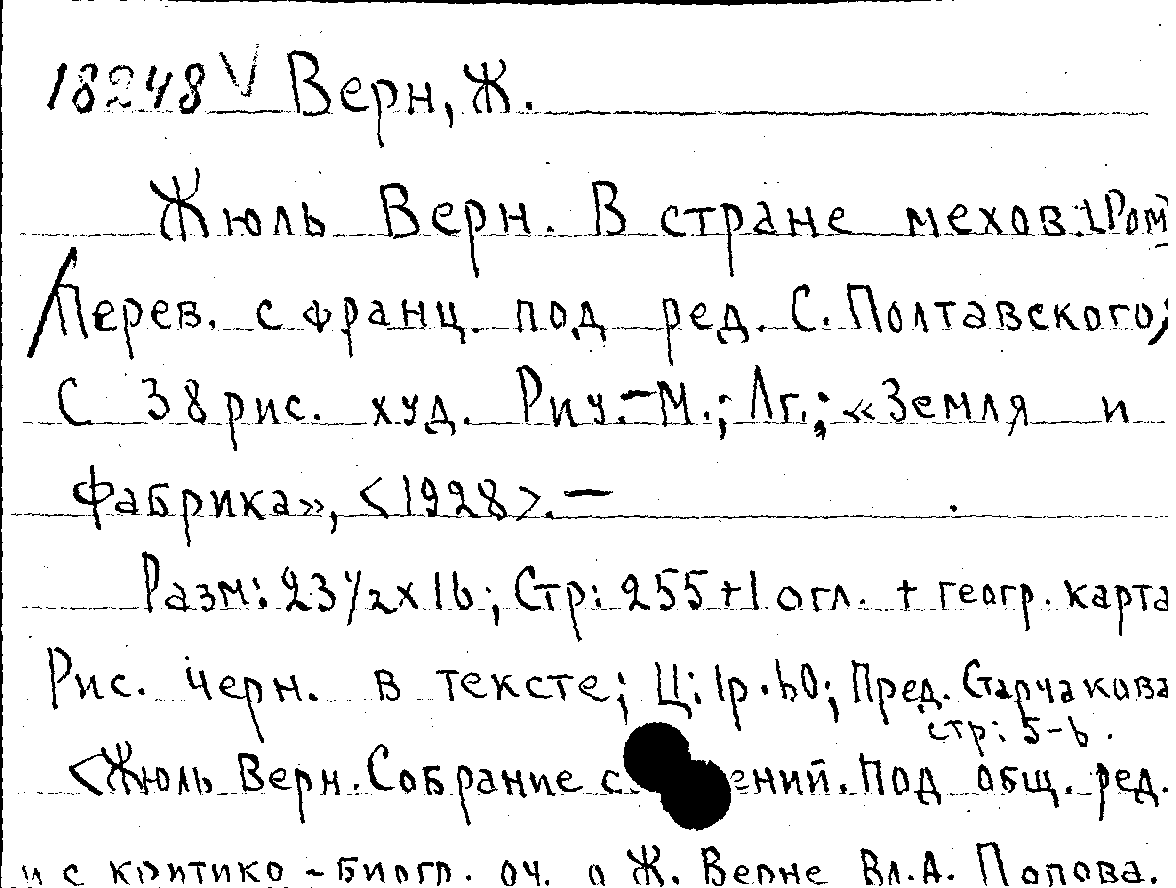 18248 V Верн, Ж.
Жюль Верн. В стране мехов: Ром
Перев. с франц. под ред. С. Полтавского;
С 38 рис. худ. Риу.- М.; Лг.; «Земля и
Фабрика», <1928>. —
Разм: 23 1/2 x 16; Стр: 255 + 1 огл. + геогр. карта
Рис. черн. в тексте; Ц: 1р. 60; Пред. Старчакова
стр: 5-6.
<Жюль Верн. Собрание с ений. Под общ. ред.
и с критико - биогр. оч. о Ж. Верне Вл. А. Попова.